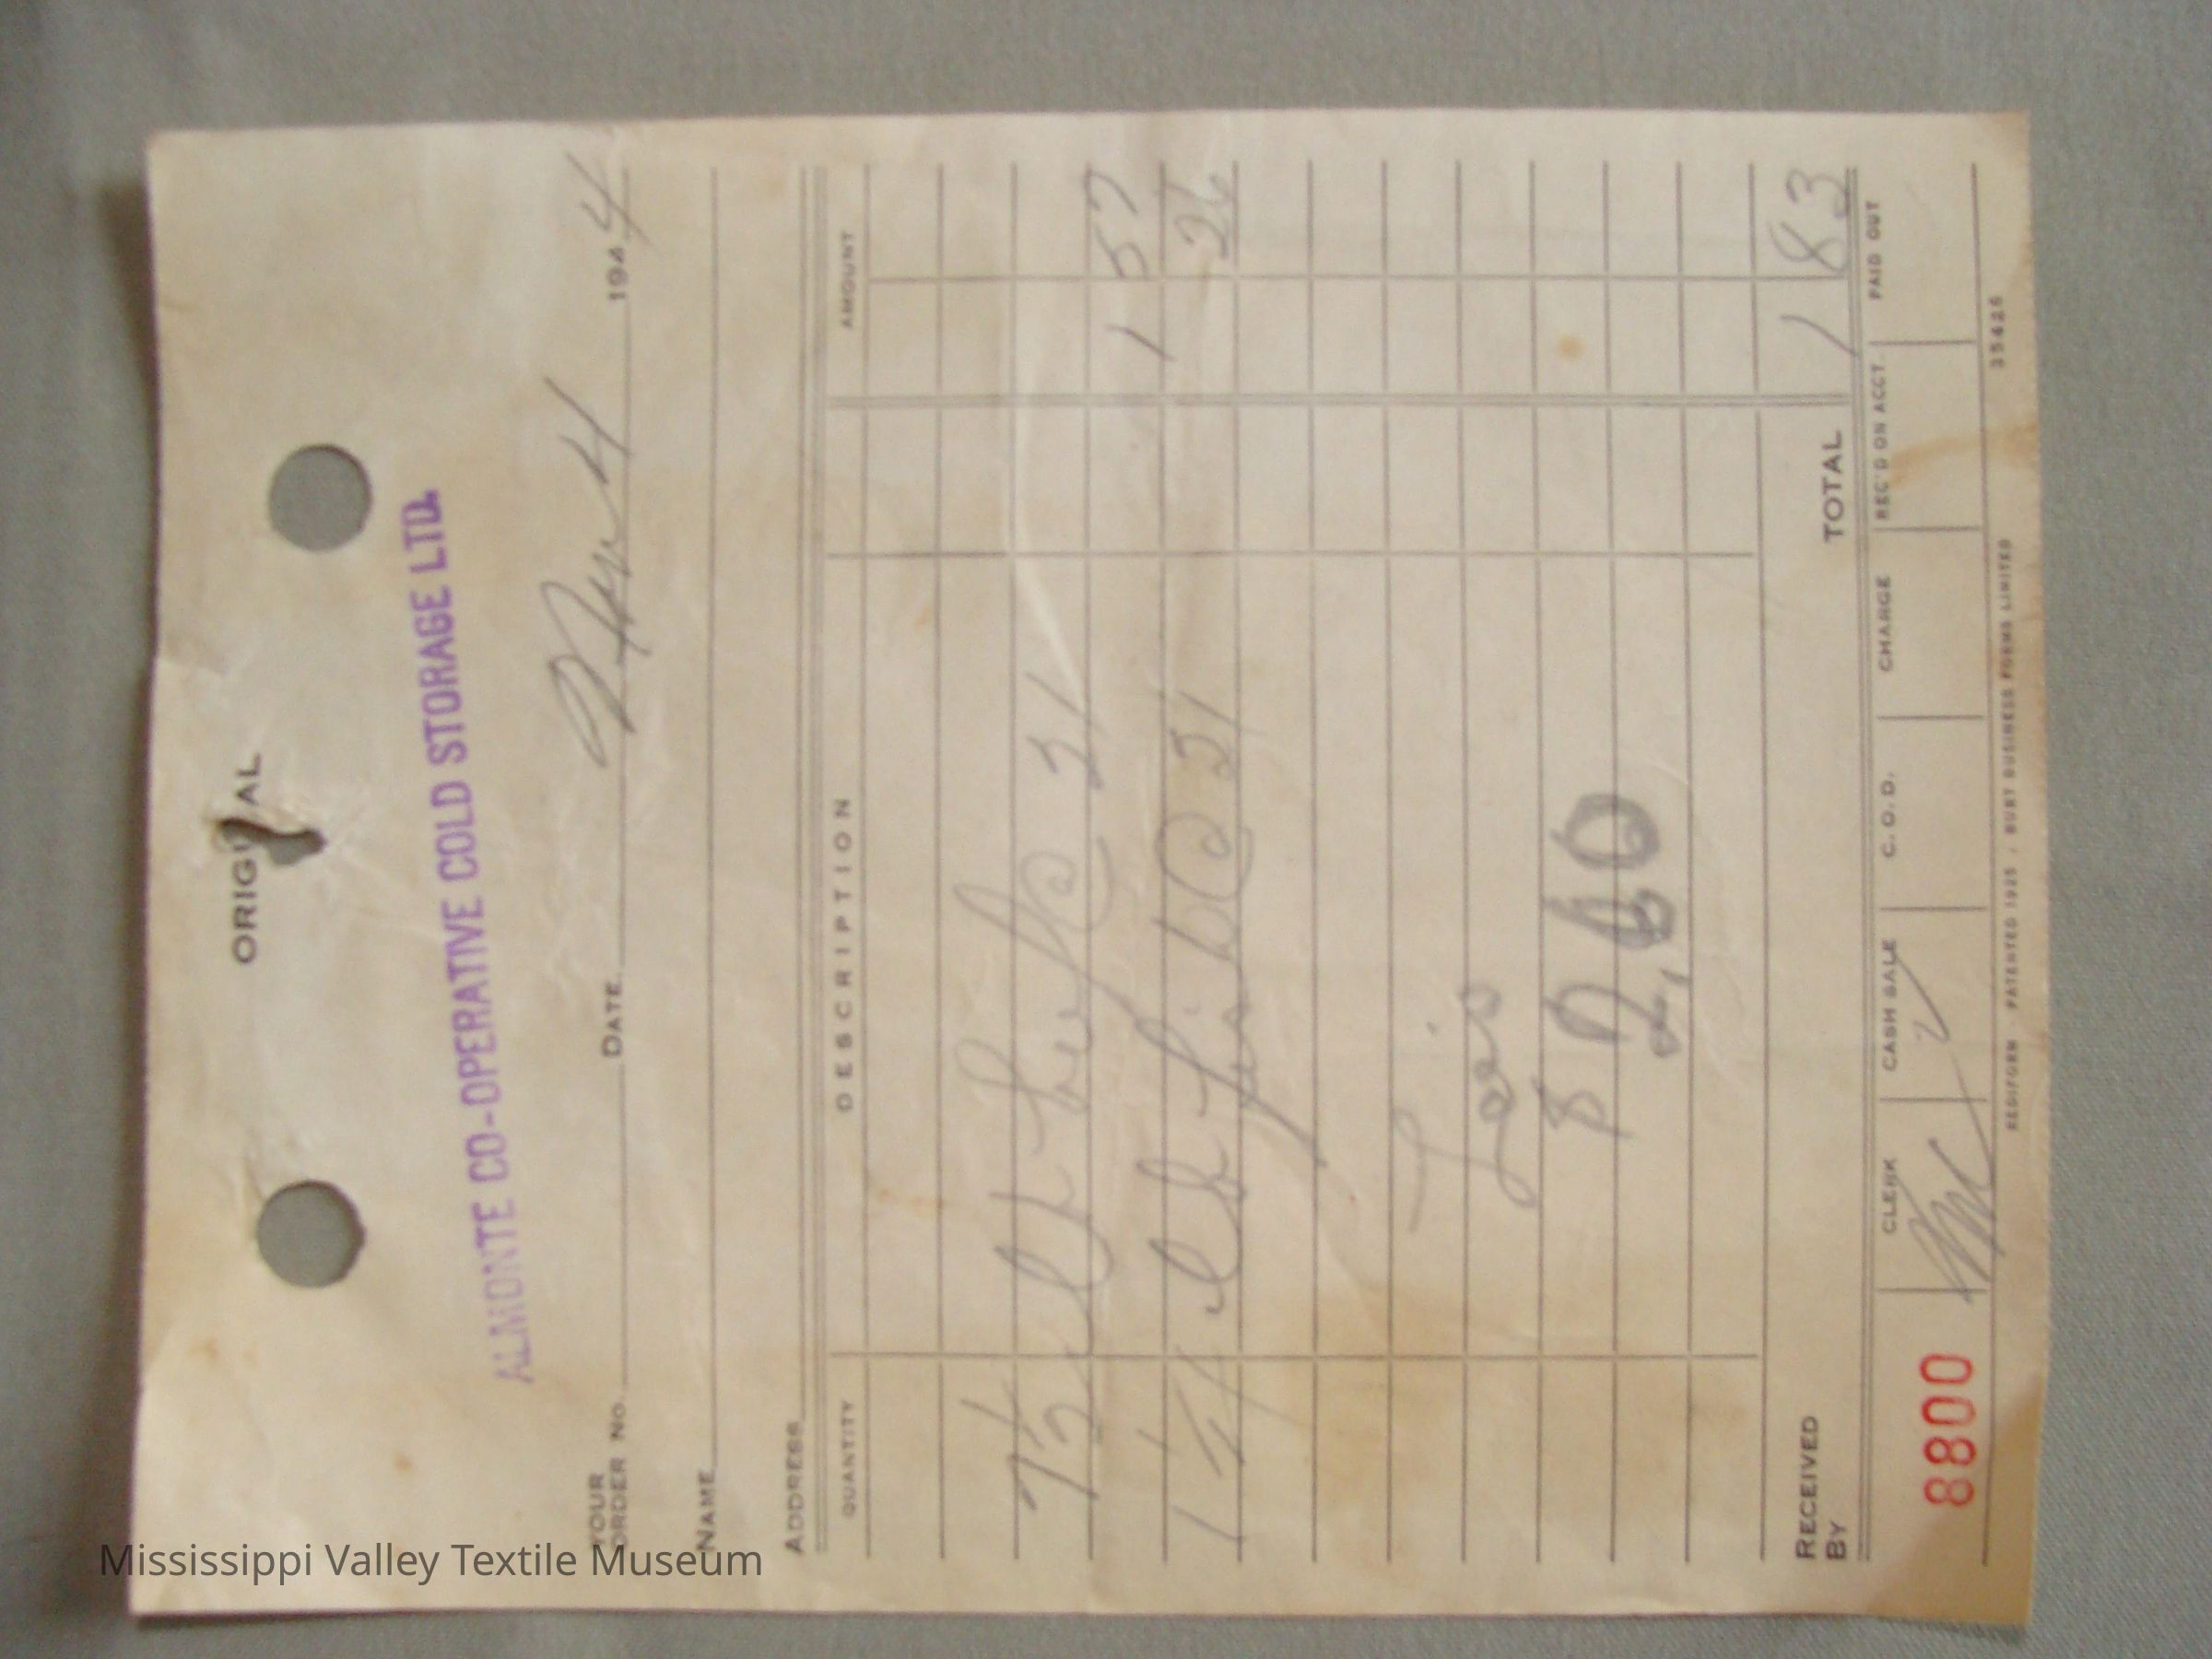 ORIGINAL
ALMONTE CO-OPERATIVE COLD STORAGE LTD.
YOUR
ORDER NO. DATE 194 4
NAME
ADDRESS
QUANTITY DESCRIPTION AMOUNT
7½ lb beef @ 21 1 57
lb @ 21 26
$ 2.60
RECEIVED
BY TOTAL 1 83
CLERK CASH SALE C.O.D. CHARGE REC'D ON ACCT. PAID OUT
8800
REDIFORM PATENTED 1925 . BURT BUSINESS FORMS LIMITED 35425
Mississippi Valley Textile Museum